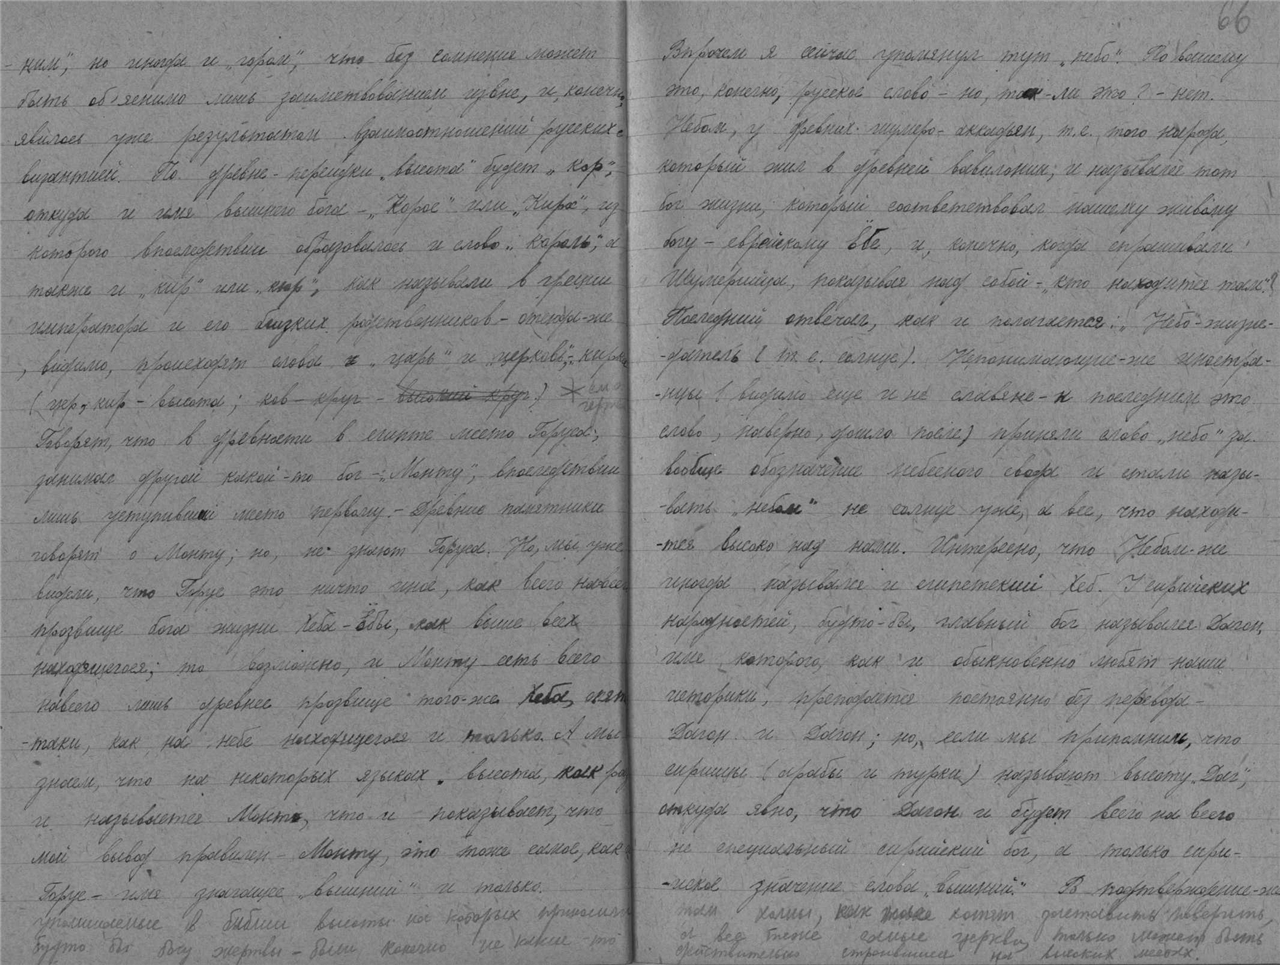 - ним", но иногда и "гором", что без сомнения может
быть об'яснимо лишь заимствованием извне, и, конечно,
явилось уже результатом взаимоотношений русских с
византией. По древне-персидски "высота" будет "кор",
откуда и имя вышнего бога - "Корос" или "Кира", из
которого впоследствии образовалось и слово: "король", а
также и "кир" или "кюр", как называли в греции
императора и его близких родственников - откуда-же
, видимо, происходят слова и "царь" и "церковь",
(укр, кир - высота; ков - круг - высокий круг)
Говорят, что в древности в египте место Горуса,
занимал другой какой-то бог - "Монту", впоследствии
лишь уступивший место первому. - Древние памятники
говорят о Монту; но, не знают Горуса. Но, мы уже
видели, что Горус это ничто иное, как всего навсего
прозвище бога жизни Хеба - Ёбы, как выше всех
находящегося; то возможно, и Монту есть всего
навсего лишь древнее прозвище того-же Хеба, опят
-таки, как на небе находящегося и только. А мы
знаем, что на некоторых языках "высота", как раз
и называется Монте, что и показывает, что
мой вывод правилен - Монту, это тоже самое, как
Горус - имя значащее "вышний" и только.
упоминаемые в библии высоты на которых приносили
будто бы богу жертвы - были конечно не какие-то
66
Впрочем я сейчас упомянул тут "небо". По вашему
это, конечно, русское слово - но, так-ли это? - нет.
Небом, у древних шумеро-аккадьян, т.е. того народа,
который жил в древней вавилонии; и назывался тот
бог жизни, который соответствовал нашему живому
богу - еврейскому Ёбе, и, конечно, когда спрашивали
Шумерийца, показывая над собой - "кто находится там"?
Последний отвечал, как и полагается: "Небо" - жизне-
-датель (т.е. солнце). Непонимающие-же иностран-
-нцы (видимо еще и не славяне - к последним это
слово, наверно, дошло после) приняли слово "небо" за
вообще обозначение небесного свода и стали назы-
-вать "небом" не солнце уже, а все, что находи-
-тся высоко над нами. Интересно, что Небом-же
иногда назывался и египетский Хеб. У сирийских
народностей, будто-бы, главный бог назывался Дагон,
имя которого, как и обыкновенно любят наши
историки, преподается постоянно без перевода -
Дагон и Дагон; но, если мы припомним, что
сирийцы (арабы и турки) называют высоту "Даг",
откуда явно, что Дагон и будет всего на всего
не специальный сирийский бог, а только сири-
-йское значение слова "вышний". В подтверждение-же
там холмы, как хотят заставить поверить,
а все теже самые церкви, только может быть
действительно строившиеся на высоких местах.